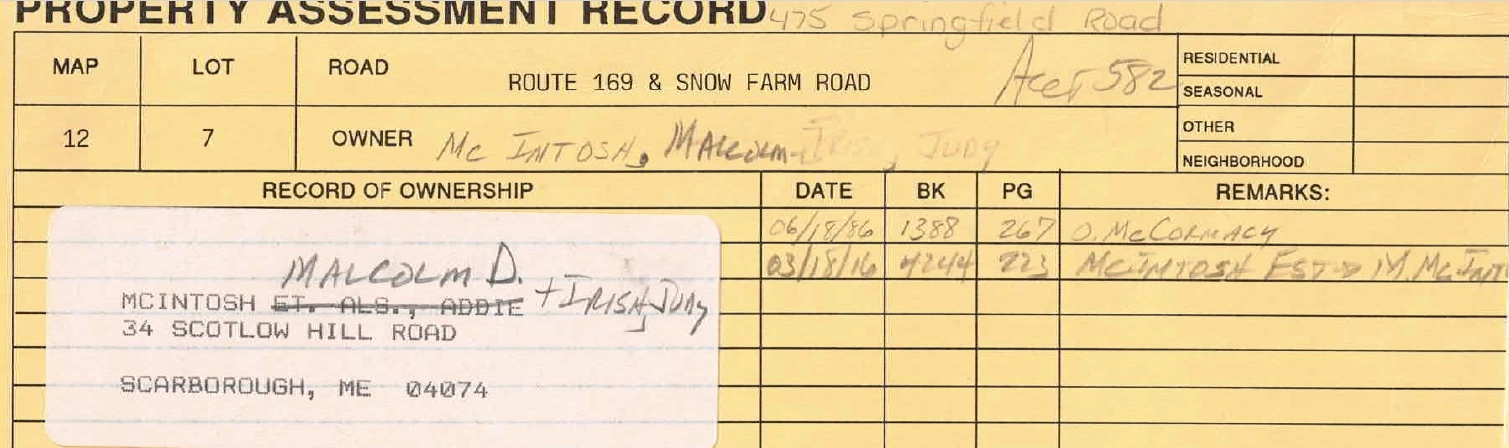 PROPERTY ASSESSMENT RECORD 475 Springfield Road
MAP LOT ROAD ROUTE 169 & SNOW FARM ROAD Acct 582 RESIDENTIAL
SEASONAL
12 7 OWNER Mc INTOSH, MALCOLM + IRISH, JUDY OTHER
NEIGHBORHOOD
RECORD OF OWNERSHIP DATE BK PG REMARKS:
06/18/86 1388 267 O. McCORMACY
03/18/16 4244 223 McINTOSH EST → M. McINT
MALCOLM D.
MCINTOSH ET. ALS., ADDIE + IRISH, JUDY
34 SCOTLOW HILL ROAD
SCARBOROUGH, ME 04074